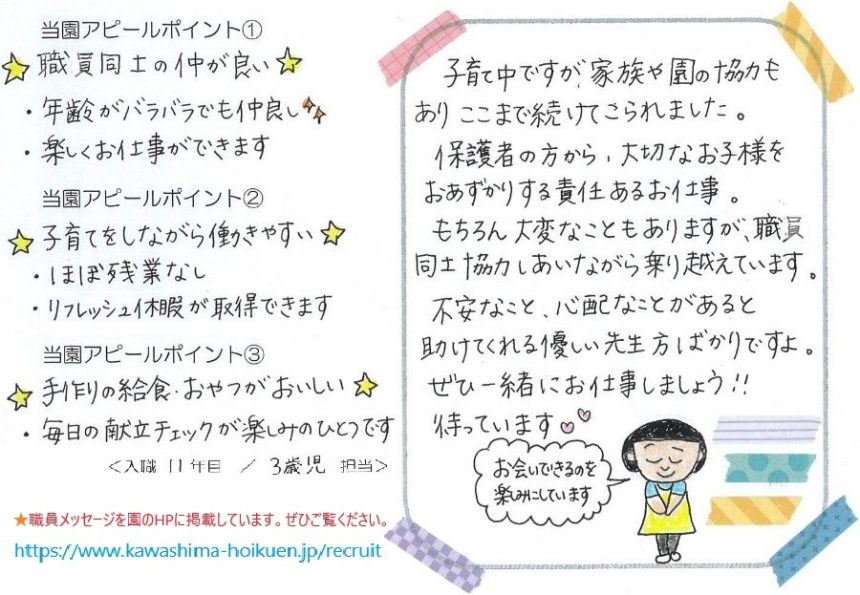 当園アピールポイント①
職員同士の仲が良い
・年齢がバラバラでも仲良し
・楽しくお仕事ができます
当園アピールポイント②
子育てをしながら働きやすい
・ほぼ残業なし
・リフレッシュ休暇が取得できます
当園アピールポイント③
手作りの給食・おやつがおいしい
・毎日の献立チェックが楽しみのひとつです
<入職 11年目 / 3歳児 担当>
★職員メッセージを園のHPに掲載しています。ぜひご覧ください。
https://www.kawashima-hoikuen.jp/recruit
子育て中ですが、家族や園の協力も
ありここまで続けてこられました。
保護者の方から、大切なお子様を
おあずかりする責任あるお仕事。
もちろん大変なこともありますが、職員
同士協力しあいながら乗り越えています。
不安なこと、心配なことがあると
助けてくれる優しい先生方ばかりですよ。
ぜひ一緒にお仕事しましょう!!
待っています
お会いできるのを
楽しみにしています